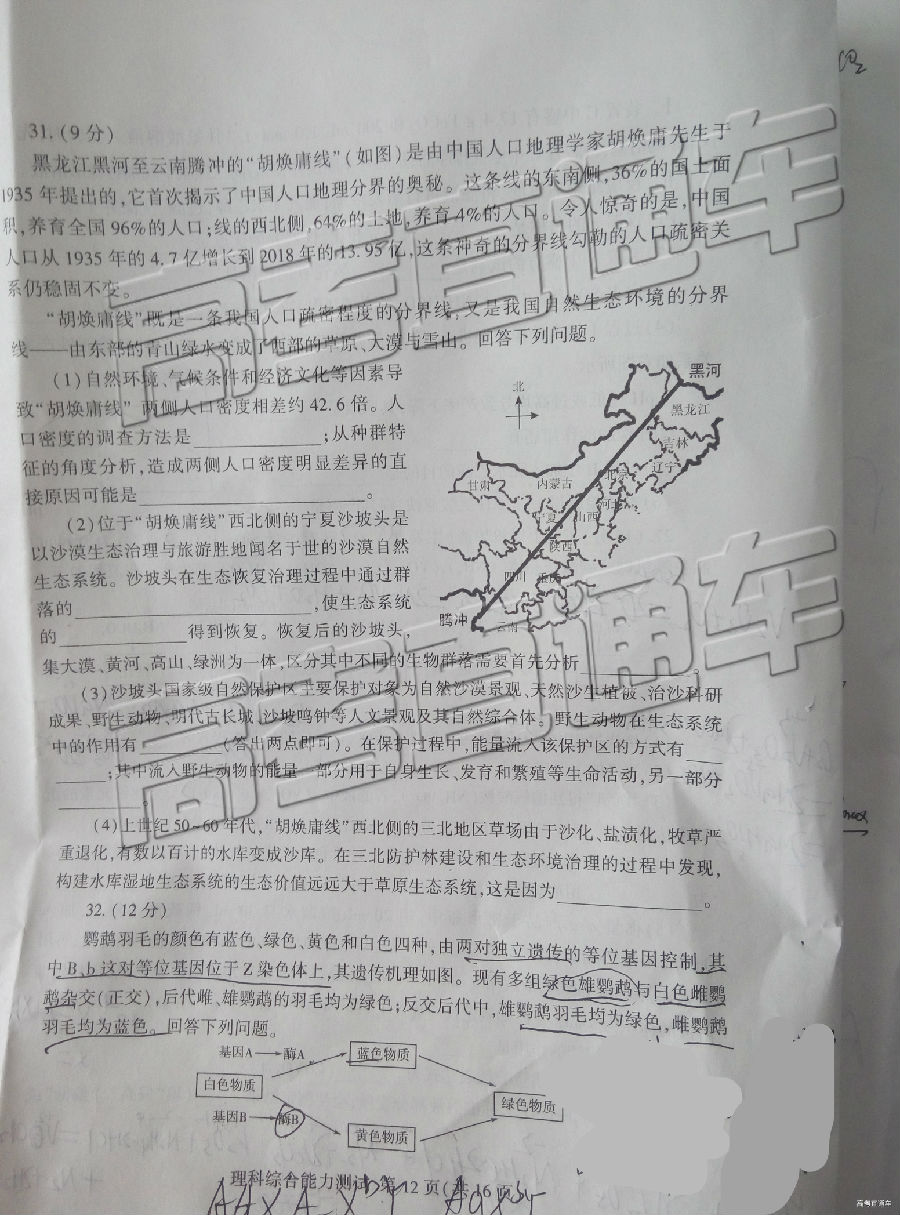 31.(9分)
黑龙江黑河至云南腾冲的“胡焕庸线”(如图)是由中国人口地理学家胡焕庸先生于
1935年提出的,它首次揭示了中国人口地理分界的奥秘。这条线的东南侧,36%的国土面
积,养育全国96%的人口;线的西北侧,64%的土地,养育4%的人口。令人惊奇的是,中国
人口从1935年的4.7亿增长到2018年的13.95亿,这条神奇的分界线勾勒的人口疏密关
系仍稳固不变。
“胡焕庸线”既是一条我国人口疏密程度的分界线,又是我国自然生态环境的分界
线——由东部的青山绿水变成了西部的草原、大漠与雪山。回答下列问题。
(1)自然环境、气候条件和经济文化等因素导
致“胡焕庸线”两侧人口密度相差约42.6倍。人
口密度的调查方法是____________;从种群特
征的角度分析,造成两侧人口密度明显差异的直
接原因可能是____________________。
(2)位于“胡焕庸线”西北侧的宁夏沙坡头是
以沙漠生态治理与旅游胜地闻名于世的沙漠自然
生态系统。沙坡头在生态恢复治理过程中通过群
落的____________________,使生态系统
的____________得到恢复。恢复后的沙坡头,
集大漠、黄河、高山、绿洲为一体,区分其中不同的生物群落需要首先分析__________。
(3)沙坡头国家级自然保护区主要保护对象为自然沙漠景观、天然沙生植被、治沙科研
成果、野生动物、明代古长城、沙坡鸣钟等人文景观及其自然综合体。野生动物在生态系统
中的作用有________(答出两点即可)。在保护过程中,能量流入该保护区的方式有____
____;其中流入野生动物的能量一部分用于自身生长、发育和繁殖等生命活动,另一部分
________。
(4)上世纪50~60年代,“胡焕庸线”西北侧的三北地区草场由于沙化、盐渍化,牧草严
重退化,有数以百计的水库变成沙库。在三北防护林建设和生态环境治理的过程中发现,
构建水库湿地生态系统的生态价值远远大于草原生态系统,这是因为____________。
北
黑河
黑龙江
吉林
辽宁
北京
河北
甘肃
内蒙古
宁夏
山西
陕西
四川
重庆
腾冲
云南
32.(12分)
鹦鹉羽毛的颜色有蓝色、绿色、黄色和白色四种,由两对独立遗传的等位基因控制,其
中B、b这对等位基因位于Z染色体上,其遗传机理如图。现有多组绿色雄鹦鹉与白色雌鹦
鹉杂交(正交),后代雌、雄鹦鹉的羽毛均为绿色;反交后代中,雄鹦鹉羽毛均为绿色,雌鹦鹉
羽毛均为蓝色。回答下列问题。
基因A
酶A
蓝色物质
白色物质
绿色物质
基因B
酶B
黄色物质
理科综合能力测试 第12页(共16页)
高考直通车
高考直通车
高考直通车